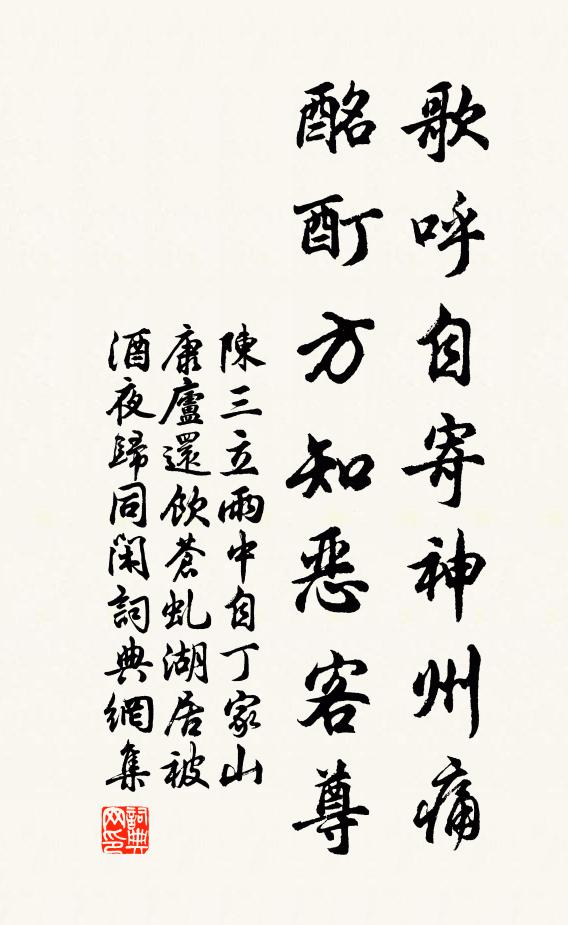 歌呼自寄神州痛
酩酊方知惡客尊
陳三立雨中自丁家山
康廬還飲蒼虬湖居被
酒夜歸同閑詞典網集
詞典网印